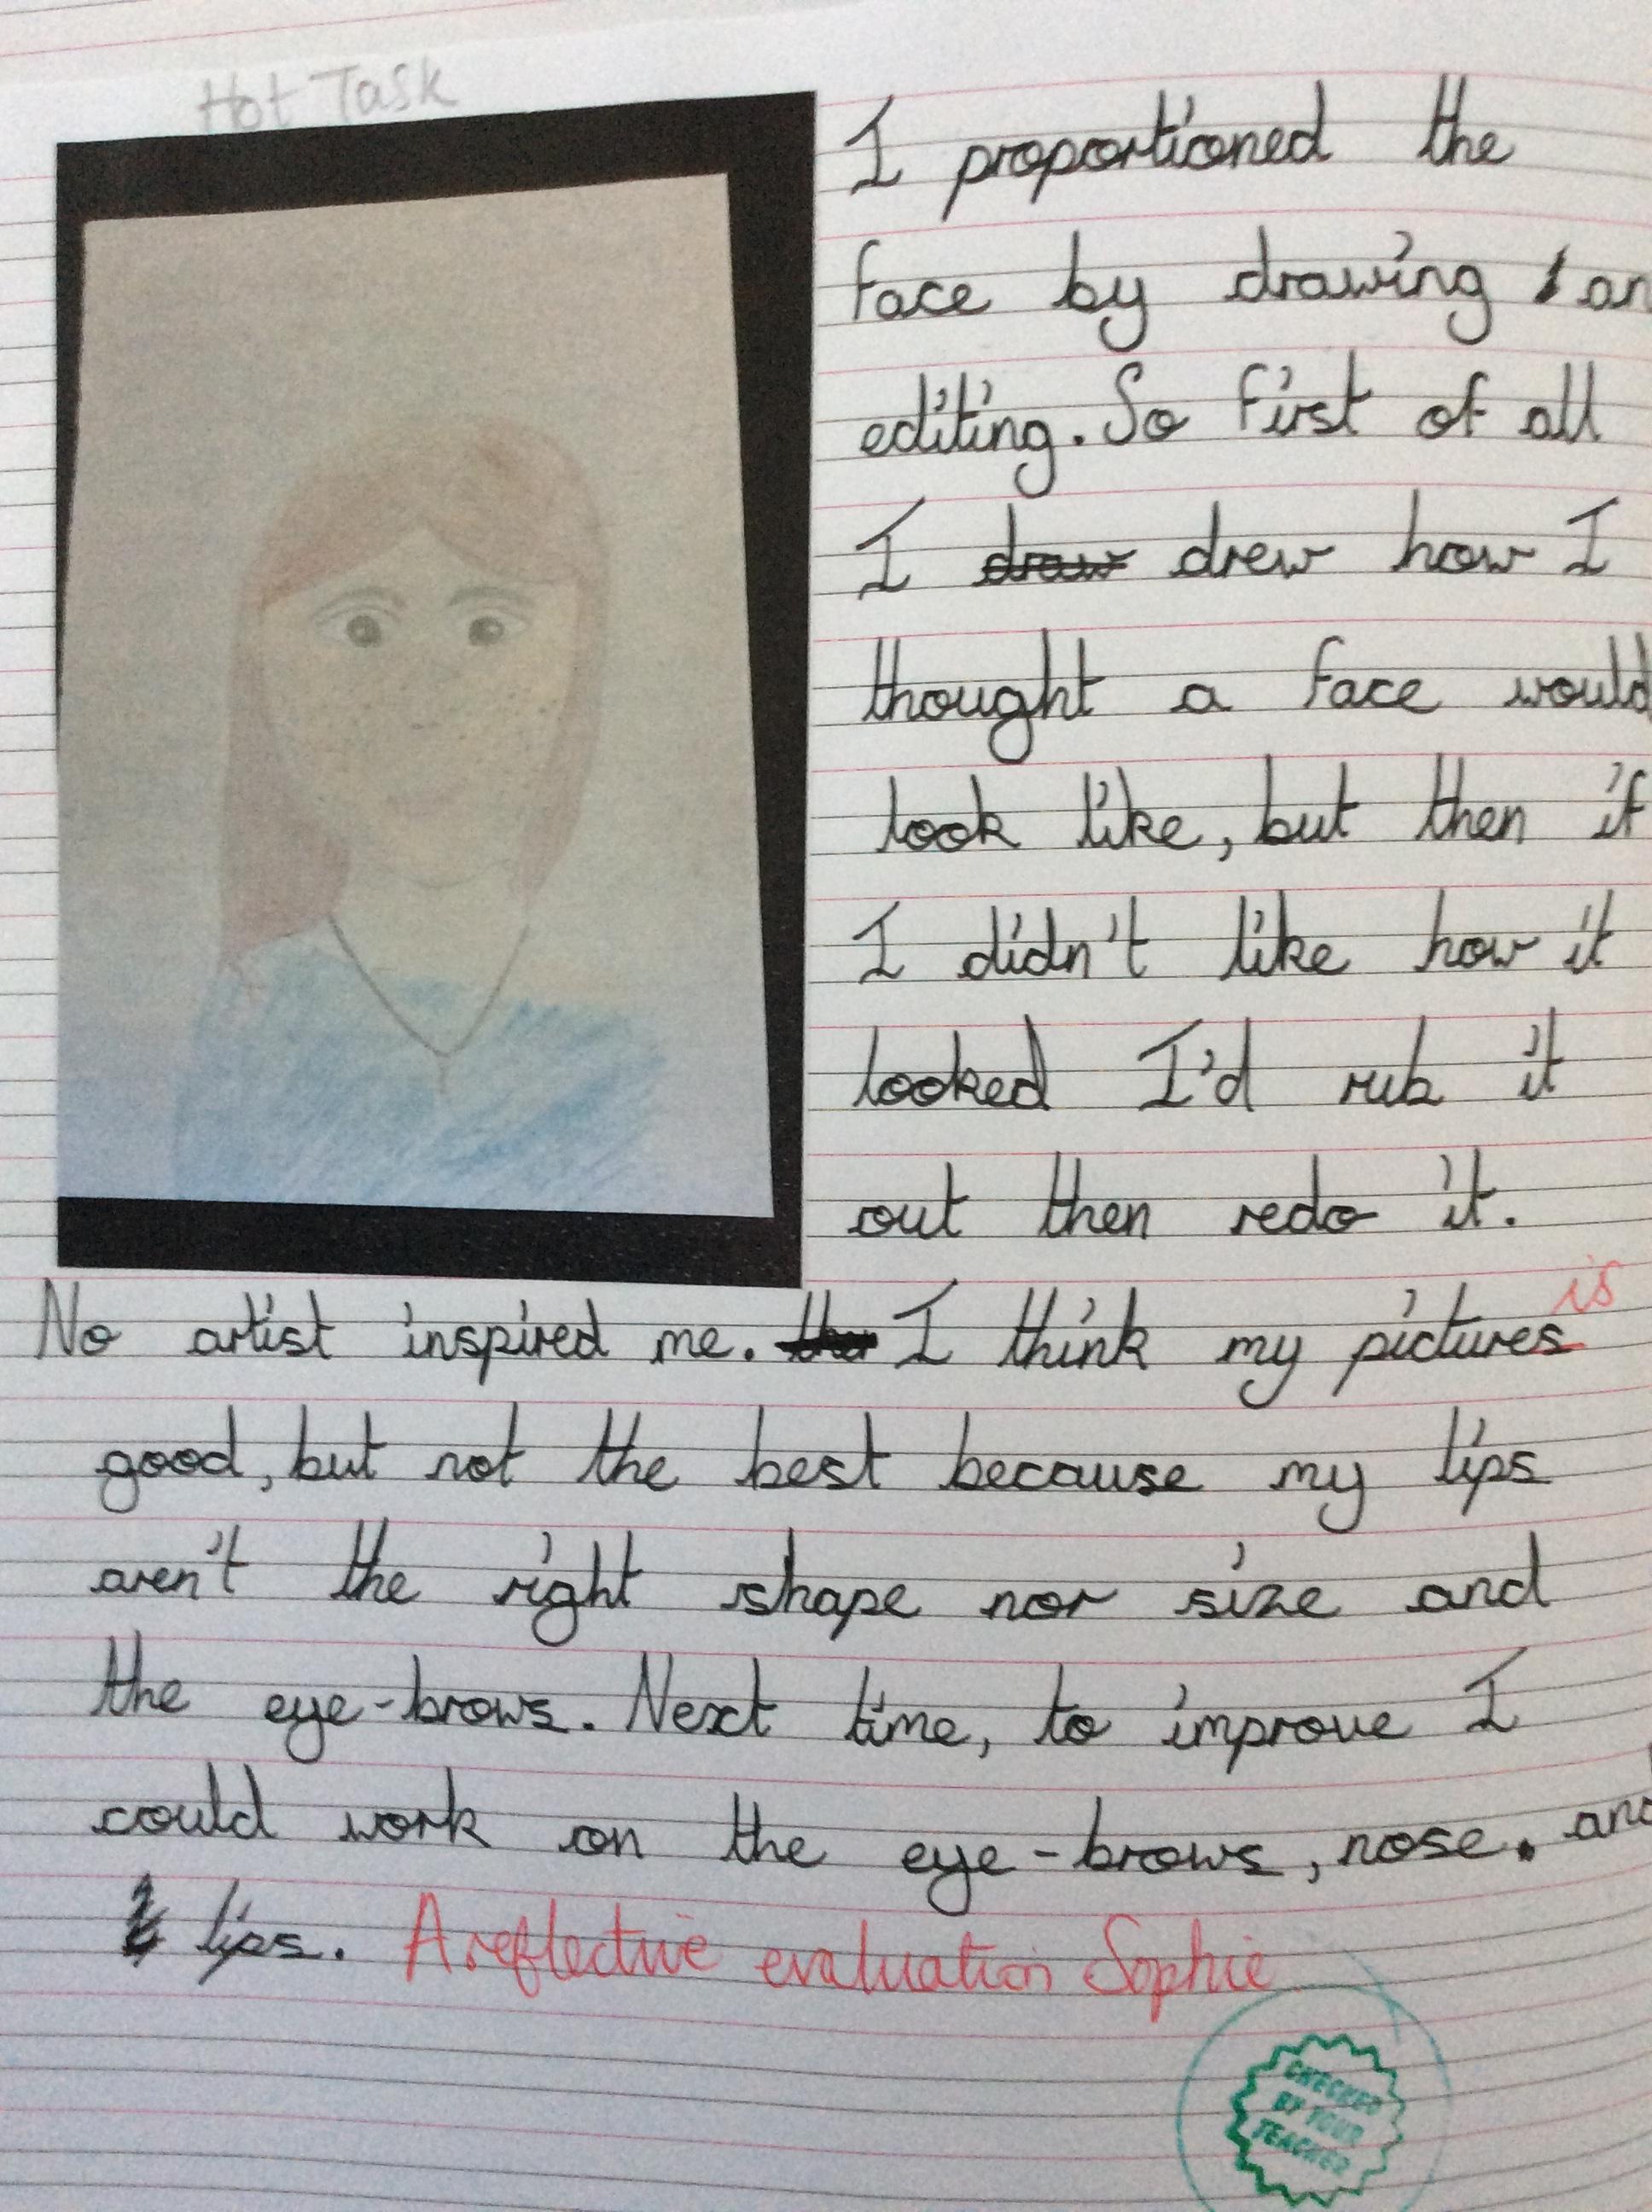 Hot Task
I proportioned the
face by drawing an
editing. So first of all
I draw drew how I
thought a face would
look like, but then if
I didn't like how it
looked I'd rub it
out then redo it.
No artist inspired me. I think my pictures is
good, but not the best because my lips
aren't the right shape nor size and
the eye-brows. Next time, to improve I
could work on the eye-brows, nose. and
lips. A reflective evaluation Sophie
CHECKED
BY YOUR
TEACHER